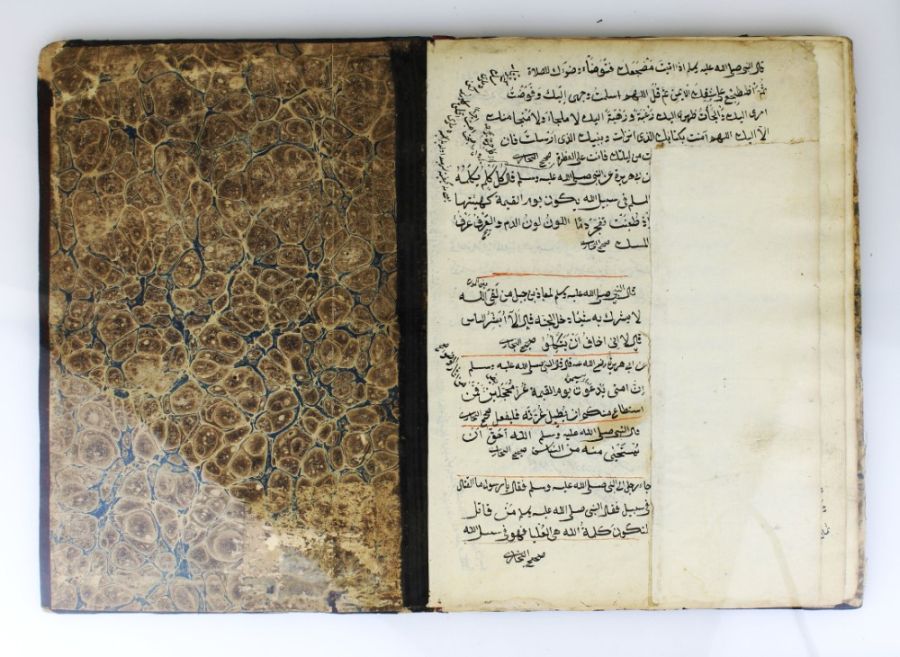 قال النبي صلى الله عليه وسلم اذا اتيت مضجعك فتوضأ وضوءك للصلاة
ثم اضطجع على شقك الايمن ثم قل اللهم اسلمت وجهى اليك وفوضت
امرى اليك والجأت ظهرى اليك رغبة ورهبة اليك لا ملجأ ولا منجا منك
الا اليك اللهم آمنت بكتابك الذى انزلت وبنبيك الذى ارسلت فان
مت من ليلتك فانت على الفطرة صحيح البخارى
ابى هريرة عن النبى صلى الله عليه وسلم قال كل كلم يكلمه
المسلم فى سبيل الله يكون يوم القيمة كهيئتها
اذ طعنت تفجر دما اللون لون الدم والعرف عرف
المسك صحيح البخارى
قال النبي صلى الله عليه وسلم لمعاذ بن جبل من لقى الله
لا يشرك به شيئا دخل الجنة قال الا ابشر الناس
قال لا انى اخاف ان يتكلوا صحيح البخارى
ابى هريرة رضى الله عنه قال قال النبى صلى الله عليه وسلم
ان امتى يدعون يوم القيمة غرا محجلين فمن
استطاع منكم ان يطيل غرته فليفعل صحيح البخارى
قال النبى صلى الله عليه وسلم الله احق ان
يستحيى منه من الناس صحيح البخارى
جاء رجل الى النبى صلى الله عليه وسلم فقال يا رسول الله ما القتال
فى سبيل فقال النبى صلى الله عليه وسلم من قاتل
لتكون كلمة الله هى العليا فهو فى سبيل الله
صحيح البخارى